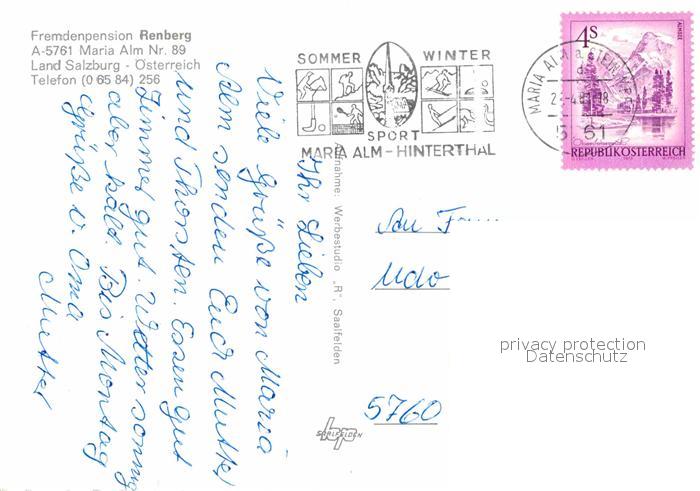 Fremdenpension Renberg
A-5761 Maria Alm Nr. 89
Land Salzburg - Österreich
Telefon (0 65 84) 256
SOMMER WINTER
SPORT
MARIA ALM - HINTERTHAL
MARIA ALM a. STEIN. MEER
4 S
ALMSEE
REPUBLIK ÖSTERREICH
Ihr Lieben
Viele Grüße von Maria
Alm senden Euch Mutter
und Thorsten. Essen gut
Zimmer gut. Wetter sonnig
aber kalt. Bis Montag
Grüße v. Oma
Mutter
Aufnahme: Werbestudio „R", Saalfelden
An Fam.
Udo
5760
SAALFELDEN
privacy protection
Datenschutz